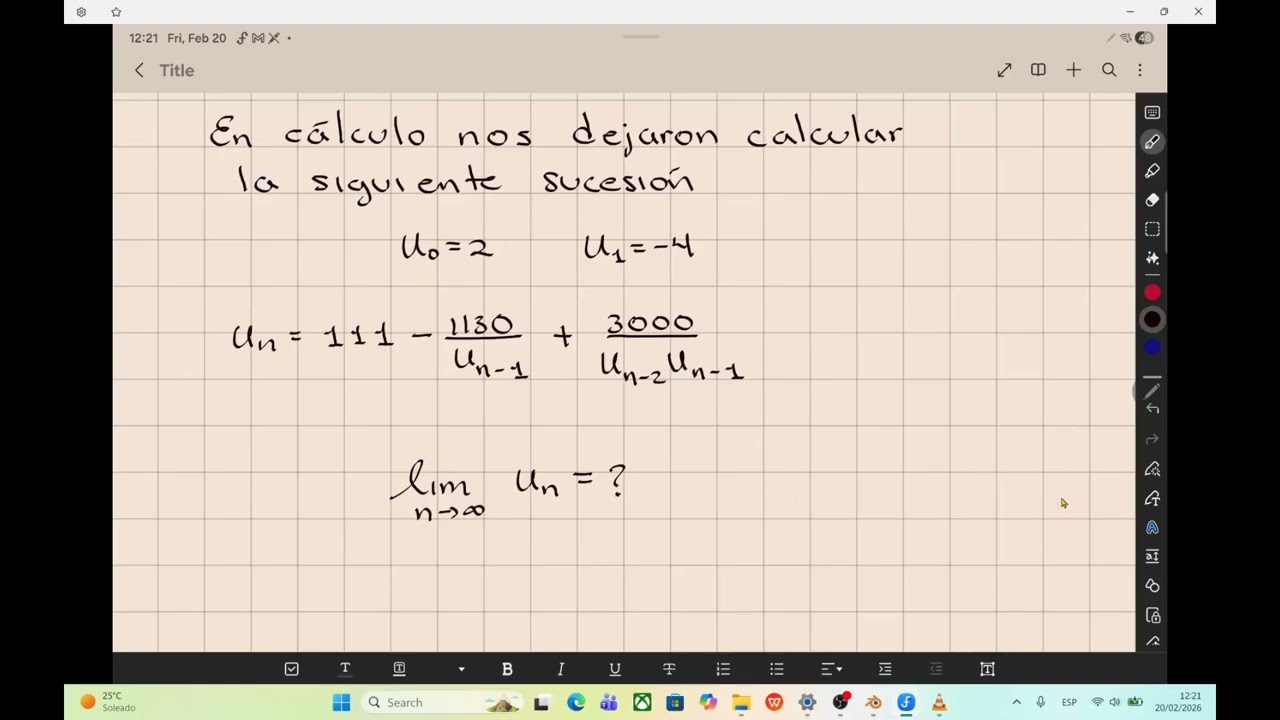 12:21 Fri, Feb 20
48
Title
En cálculo nos dejaron calcular
la siguiente sucesión
U₀=2 U₁=-4
Uₙ = 111 - 1130/Uₙ₋₁ + 3000/(Uₙ₋₂Uₙ₋₁)
lim n→∞ Uₙ = ?
T B I U T
25°C
Soleado
Search
ESP
12:21
20/02/2026